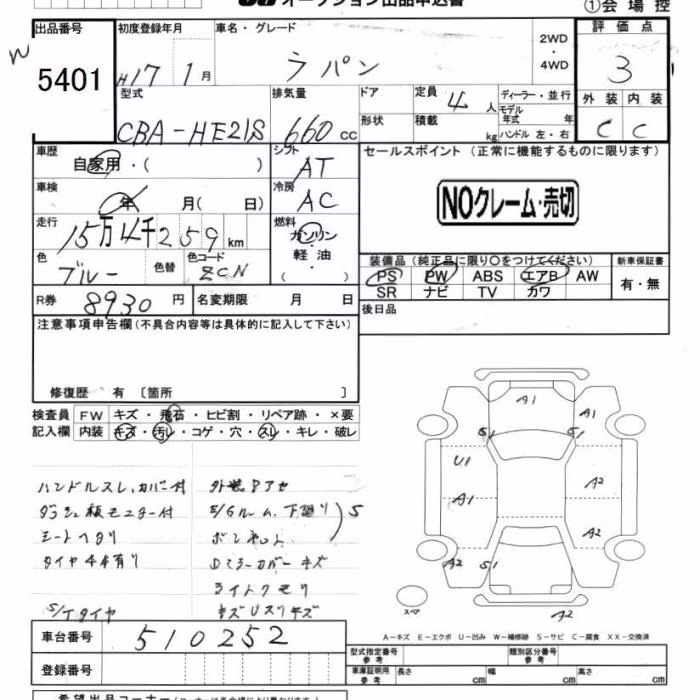 オークション出品申込書
①会場控
出品番号
5401
初度登録年月
H17 1月
車名・グレード
ラパン
2WD
・
4WD
評価点
3
外装 内装
C C
型式
CBA-HE21S
排気量
660 cc
ドア
形状
定員 4 人
積載 kg
ディーラー・並行
モデル年式 年
ハンドル 左・右
車歴
自家用・( )
シフト
AT
セールスポイント (正常に機能するものに限ります)
NOクレーム・売切
車検
年 月( 日)
冷房
AC
走行
15万4千259km
燃料
ガソリン
・
軽油
( )
色
ブルー
色替
色コード
ZCN
装備品 (純正品に限り〇をつけてください)
PS PW ABS エアB AW
SR ナビ TV カワ
新車保証書
有・無
R券 8930円
名変期限 月 日
後日品
注意事項申告欄(不具合内容等は具体的に記入して下さい)
修復歴 有 〔箇所 〕
検査員 FW キズ・飛石・ヒビ割・リペア跡・×要
記入欄 内装 キズ・汚レ・コゲ・穴・スレ・キレ・破レ
ハンドルスレ、カバー付
シートヘタリ
S/Tタイヤ
ボンネット
DミラーカバーキズS
ライトクモリ
A1
A1
S1 S1
U1
A1
A2
A2
A2 S1
A2
スペア
A-キズ E-エクボ U-凹み W-補修跡 S-サビ C-腐食 XX-交換済
車台番号 510252
登録番号
型式指定番号
参考
類別区分番号
参考
車庫証明用
参考
長さ cm
幅 cm
高さ cm
希望出品コーナー